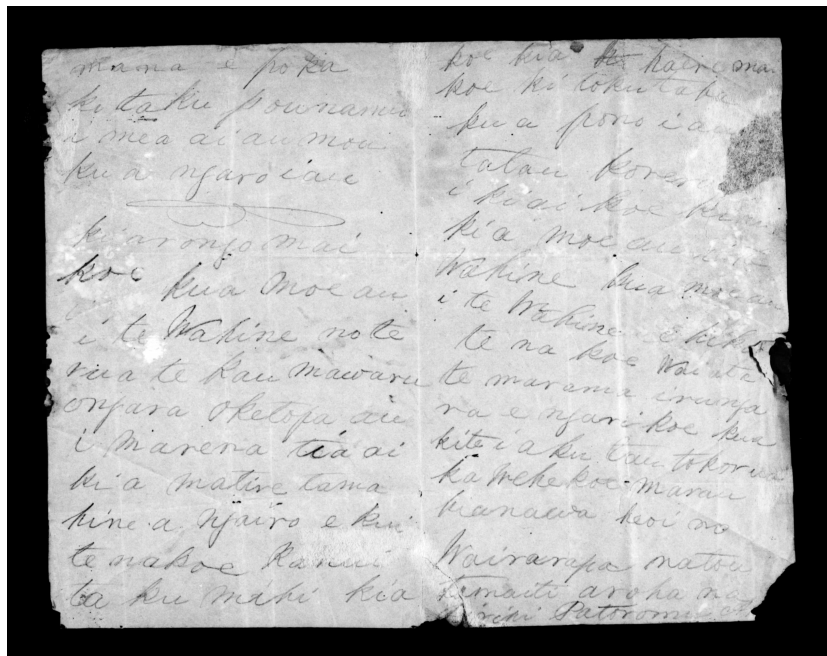 mama e poka
ki taku pounamu
i mea ai au mou
kua ngaro iau
kia rongo mai
koe kua moe au
i te Wahine no te
rua te kau mawaru
ongara Oketopa au
i marena tia ai
kia matire tama
hine a Ngairo e kui
te nakoe Kanui
ta ku mihi kia
koe kia haere mai
koe ki toku taha
kua pono i au
tatau
i kiai koe
kia moe au
Wahine kua moe au
i te Wahine e
te na koe Waiata
te marama irunga
ra e ngari koe kua
kite i aku tau tokorua
ka wehe koe marau
heoi no
Wairarapa natou
tamaiti aroha na